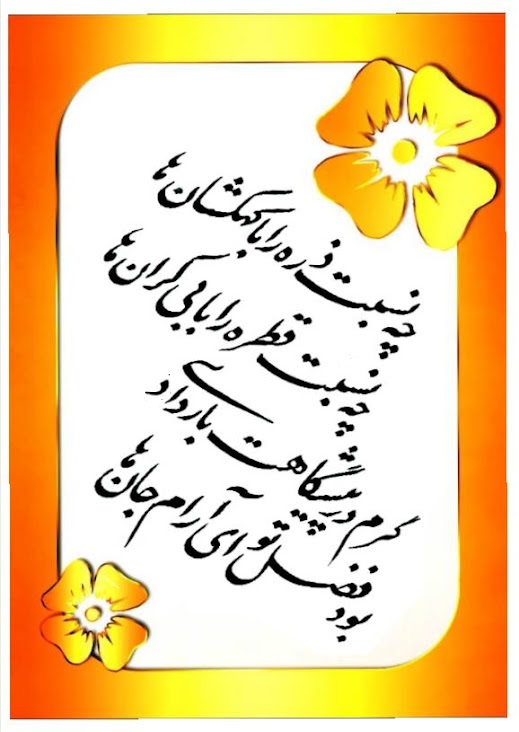 چه نسبت ذره را با کهکشان ها
چه نسبت قطره را با بی کران ها
گرم در پیشگاهت بار دادی
بود فضل تو ای آرام جان ها